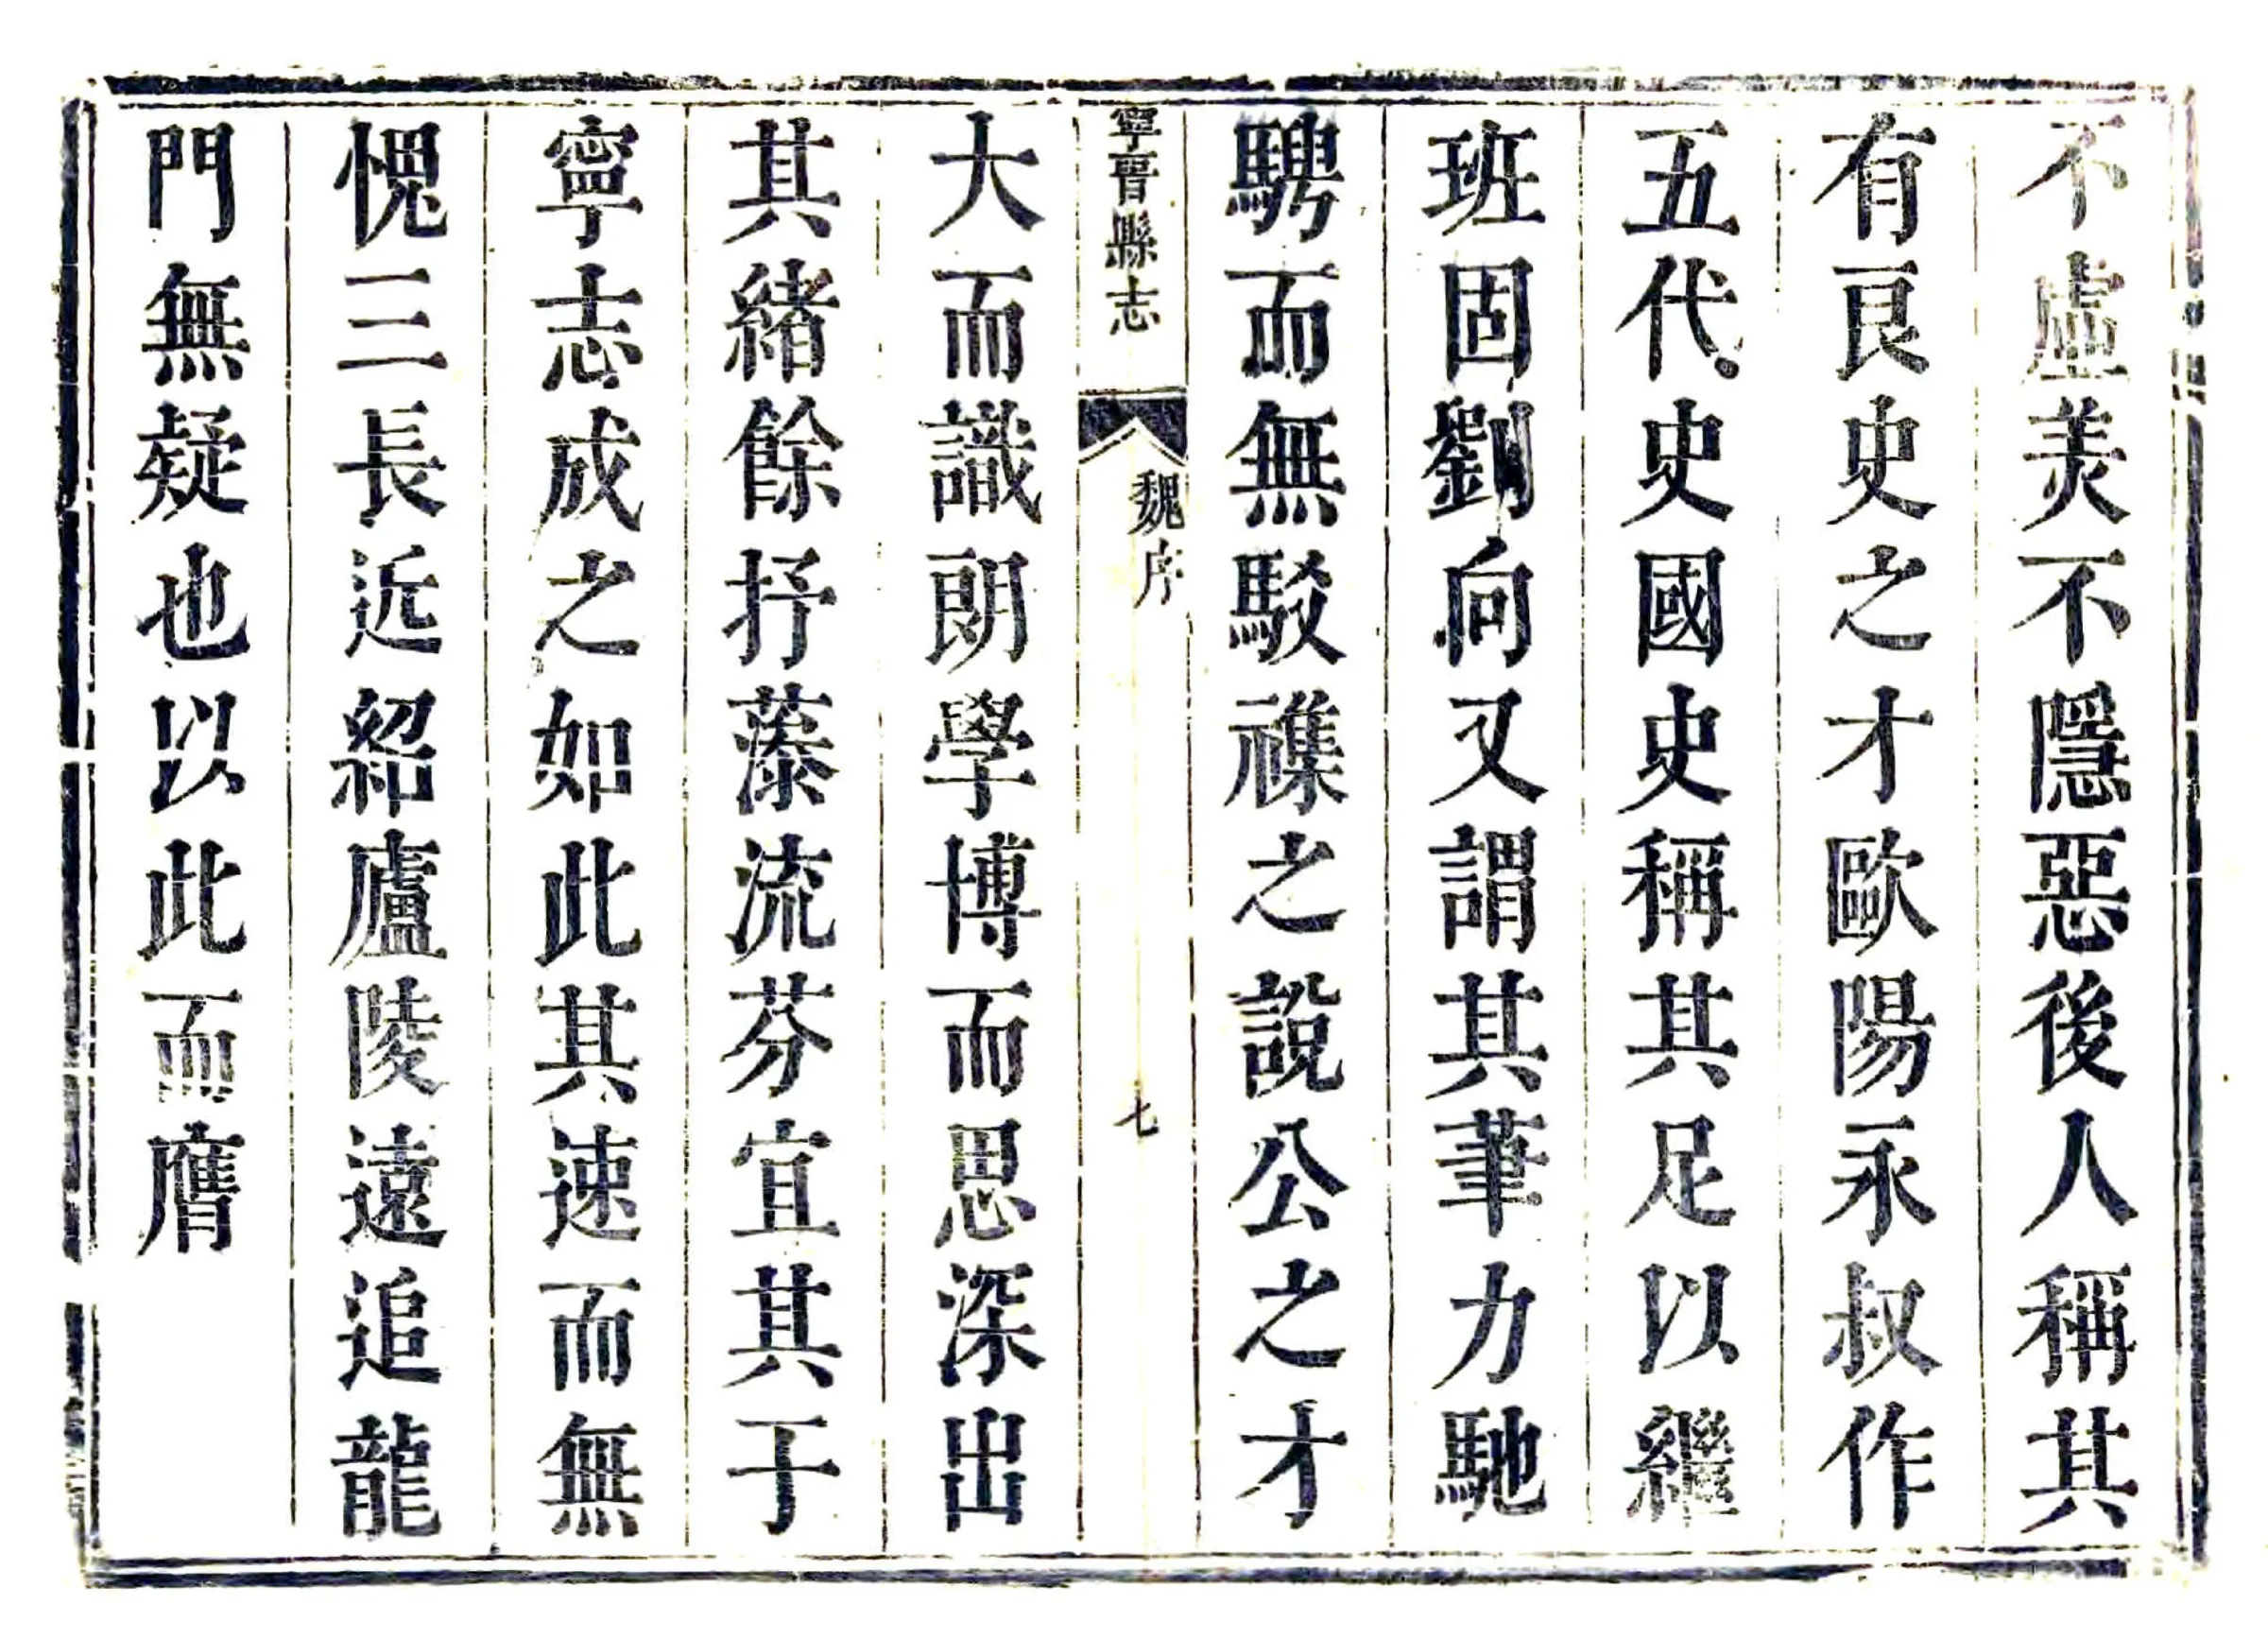 不虛美不隱惡後人稱其
有良史之才歐陽永叔作
五代史國史稱其足以繼
班固劉向又謂其筆力馳
騁而無駁襍之說公之才
寧晉縣志 魏序 七
大而識朗學博而思深出
其緒餘抒藻流芬宜其于
寧志成之如此其速而無
愧三長近紹廬陵遠追龍
門無疑也以此而膺